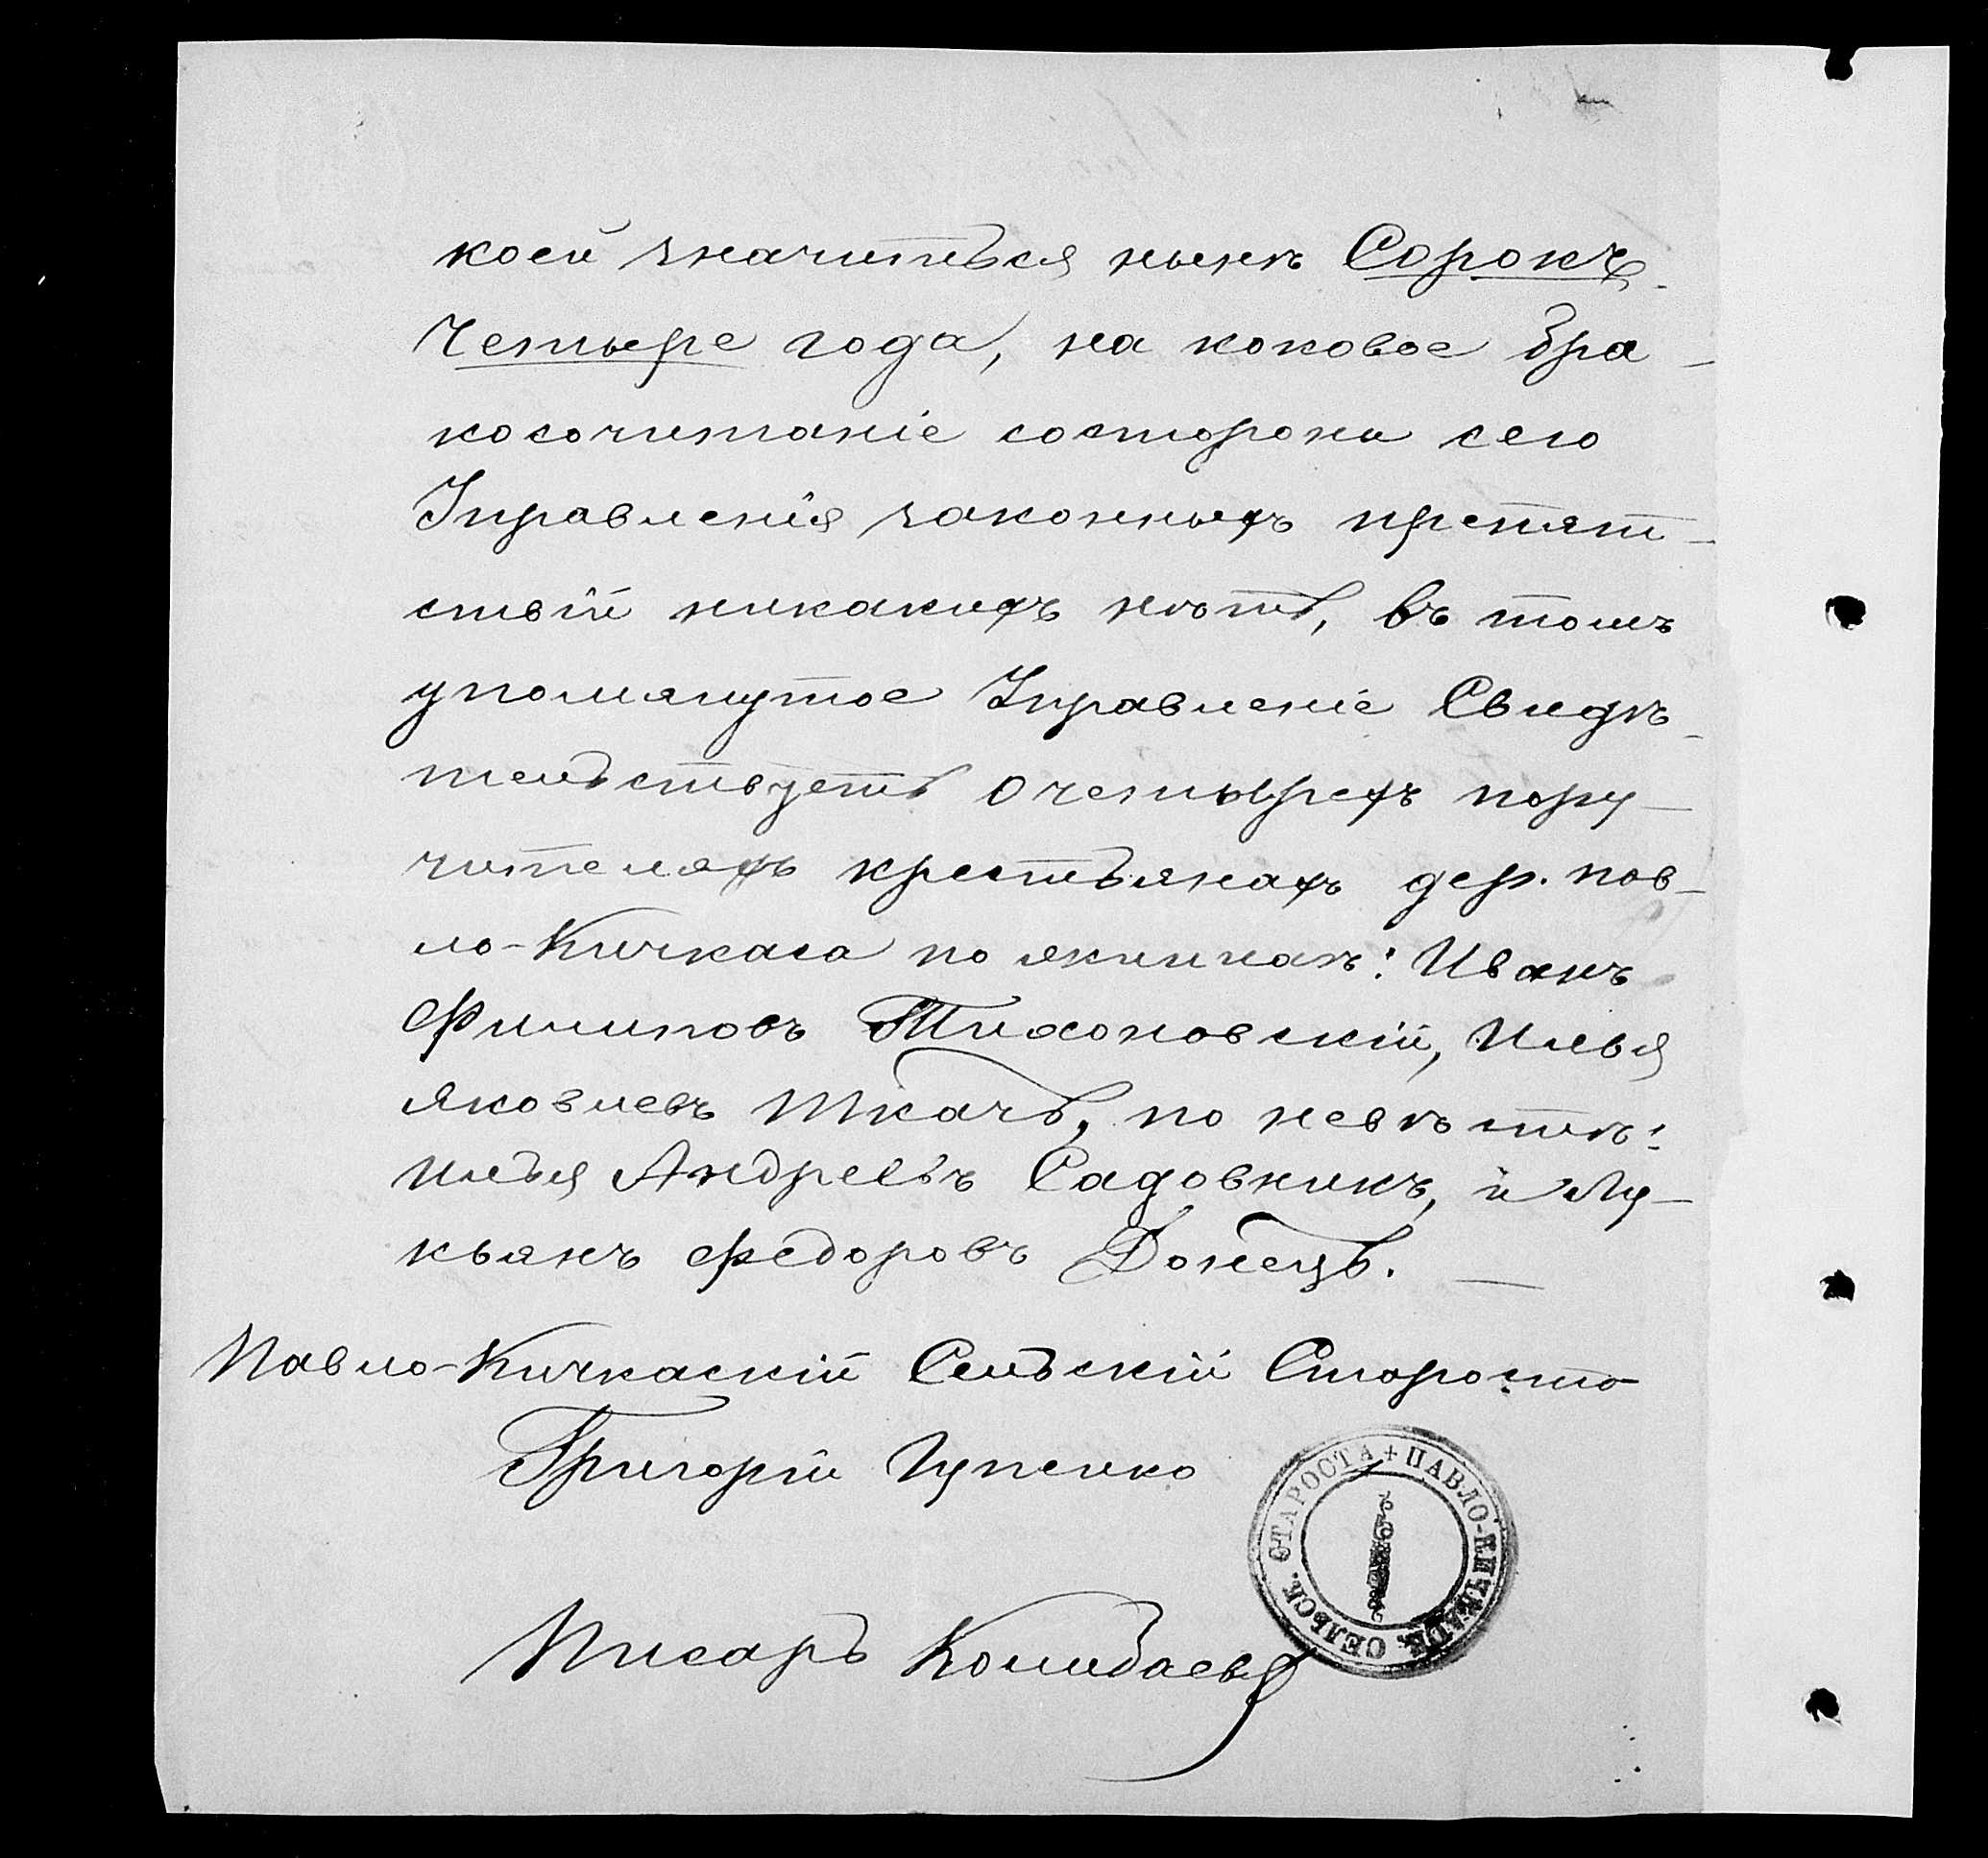 коей значиться нынѣ Сорокъ
Четыре года, на коковое бра-
косочитаніе состороны сего
Управленія законныхъ препят-
ствій никакихъ нѣтъ, въ томъ
упомянутое Управленіе Свидѣ-
тельствуетъ о четырехъ пору-
чителяхъ крестьянахъ дер. пав-
ло-Кичкаса по женихѣ: Иванъ
Филиповъ Тихоновскій, Илья
Яковлевъ Ткачъ, по невѣстѣ:
Илья Андреевъ Садовникъ, и Лу-
кьянъ Федоровъ Донецъ.
Павло-Кичкаскій Сельскій Староста
Григорій Цупенко
Писарь
СЕЛЬСК. СТАРОСТА + ПАВЛО-КИЧКАСК.